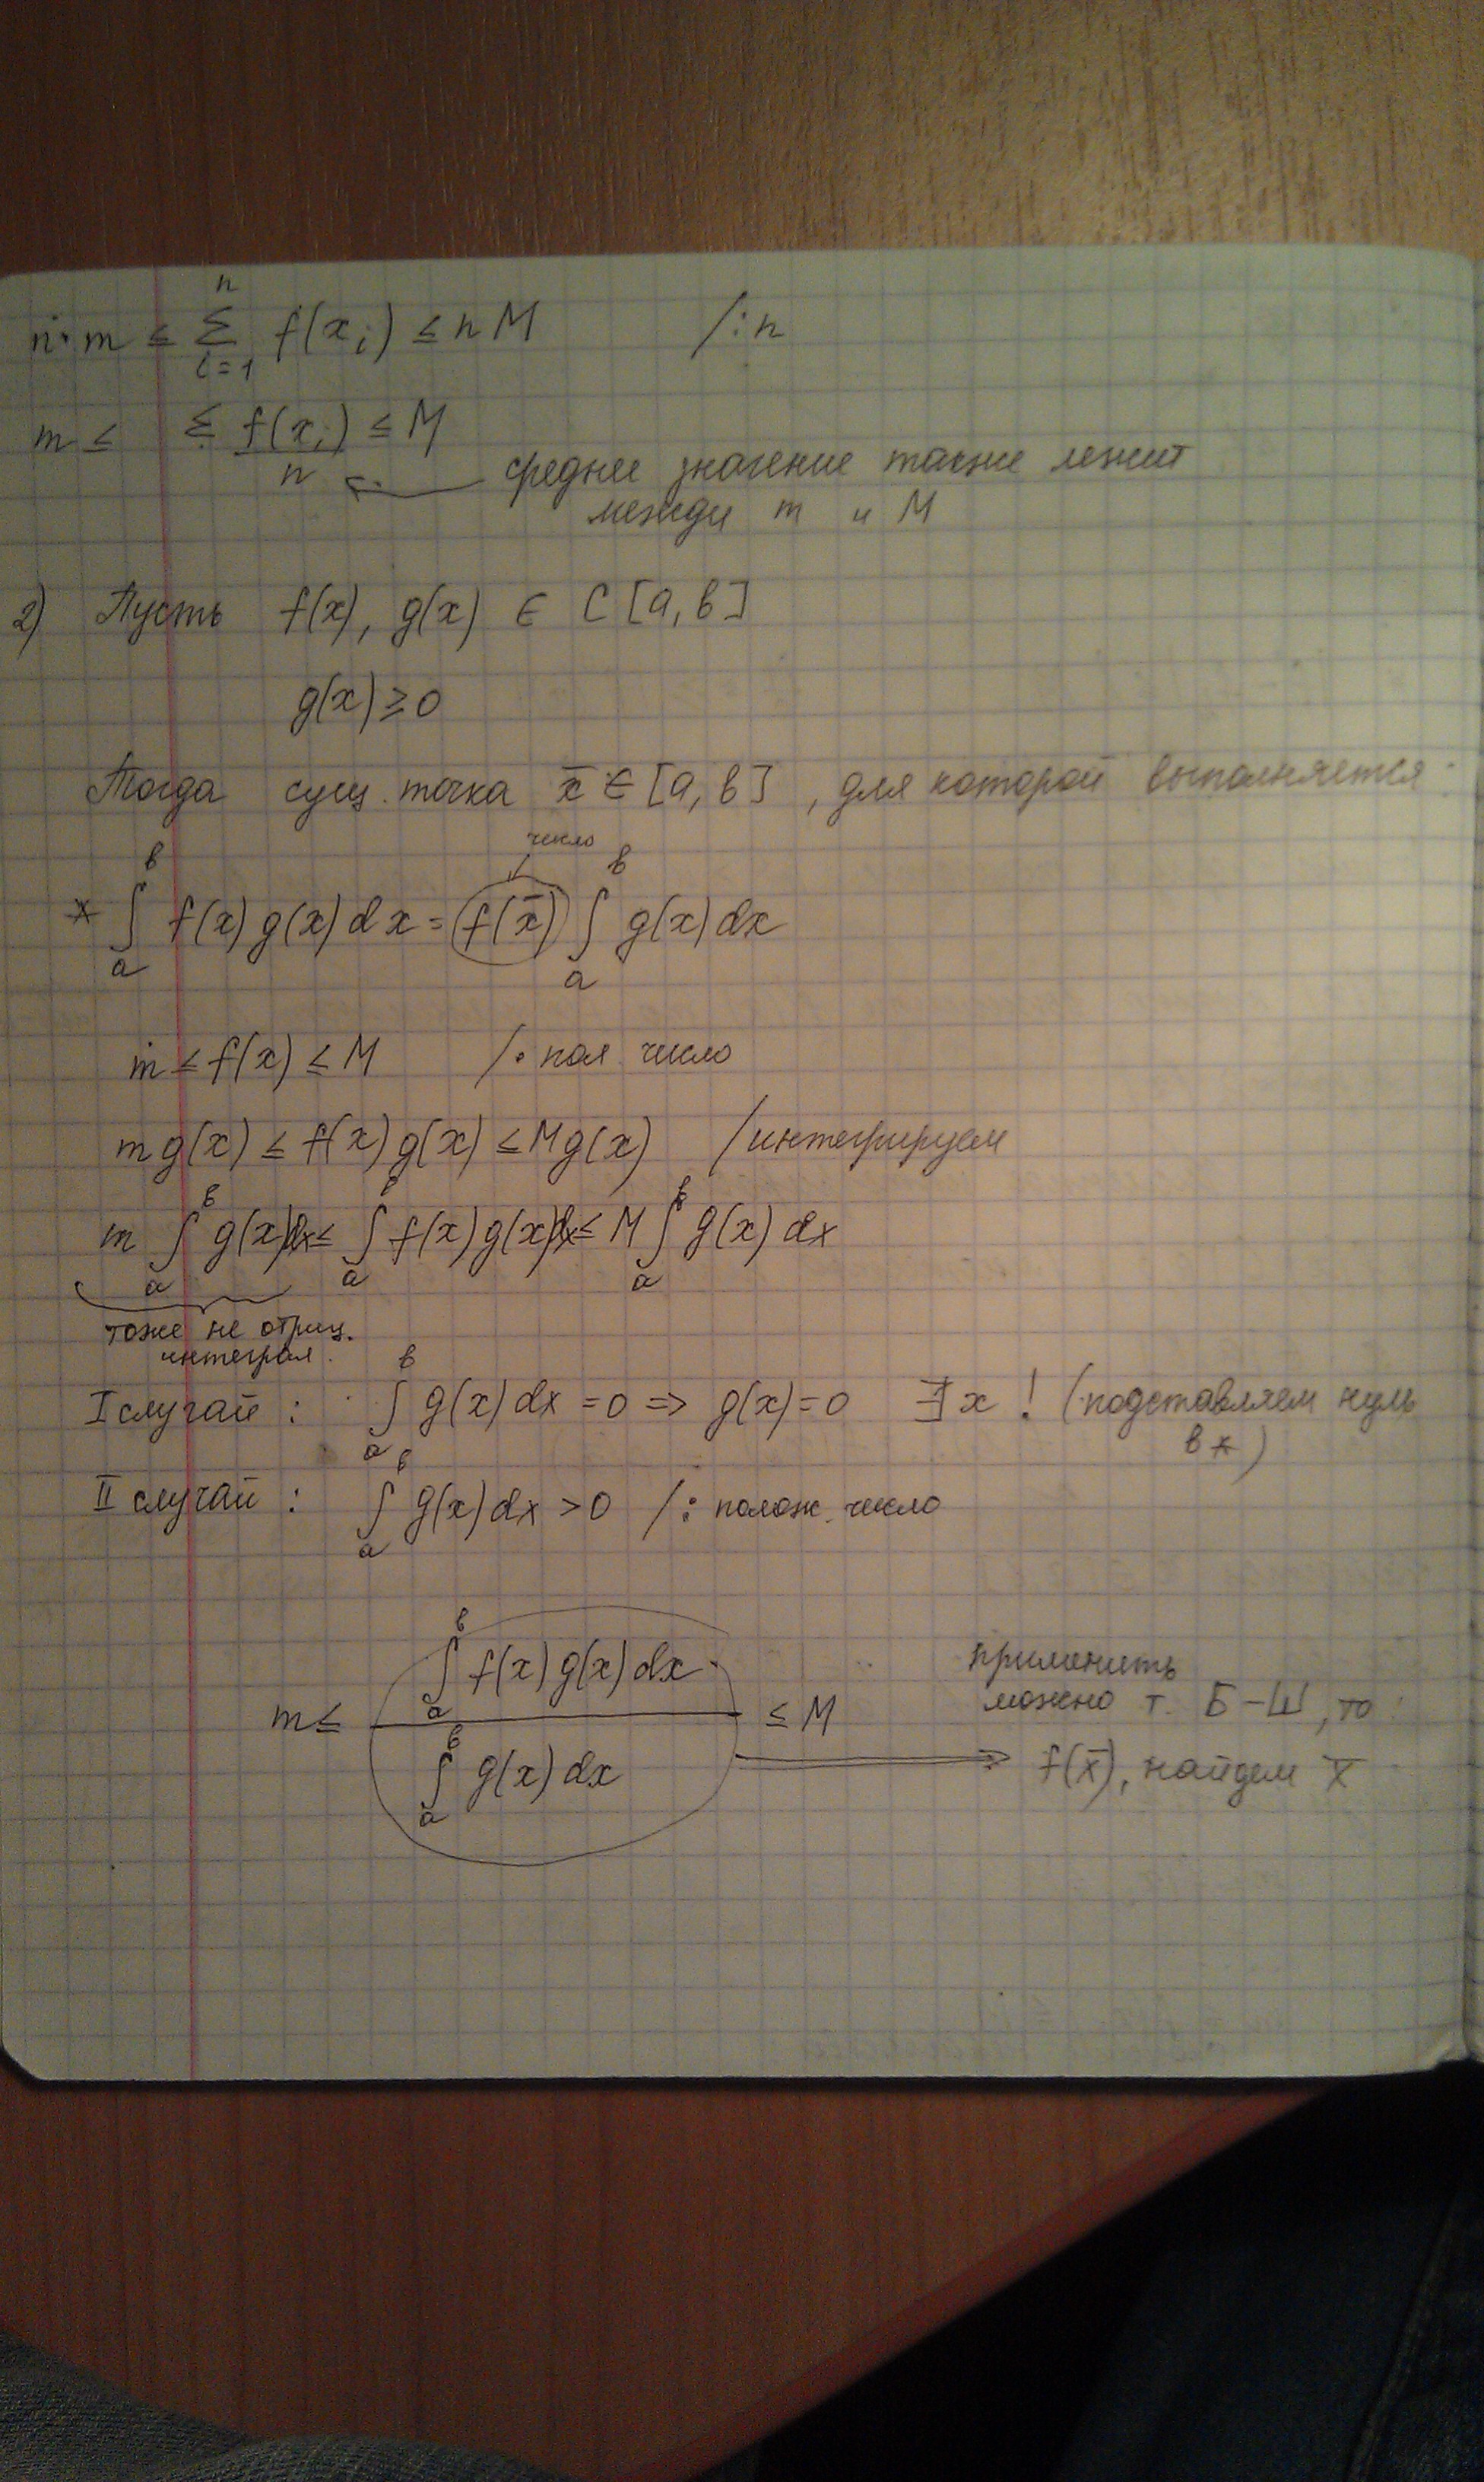 n·m ≤ n∑i=1 f(xi) ≤ nM /:n
m ≤ ∑ f(xi)/n ≤ M
среднее значение также лежит
между m и M
2) Пусть f(x), g(x) ∈ C [a, b]
g(x) ≥ 0
Тогда сущ. точка x̄ ∈ [a, b], для которой выполняется:
число
* ∫ₐᵇ f(x) g(x) dx = f(x̄) ∫ₐᵇ g(x) dx
m ≤ f(x) ≤ M /· пол. число
m g(x) ≤ f(x) g(x) ≤ M g(x) /интегрируем
m ∫ₐᵇ g(x)dx ≤ ∫ₐᵇ f(x) g(x)dx ≤ M ∫ₐᵇ g(x) dx
тоже не отриц.
интеграл.
I случай: ∫ₐᵇ g(x) dx = 0 => g(x) = 0 ∃ x ! (подставляем нуль
в *)
II случай: ∫ₐᵇ g(x) dx > 0 /: полож. число
m ≤ ∫ₐᵇ f(x) g(x) dx / ∫ₐᵇ g(x) dx ≤ M
применить
можно т. Б-Ш, то:
f(x̄), найдем x̄